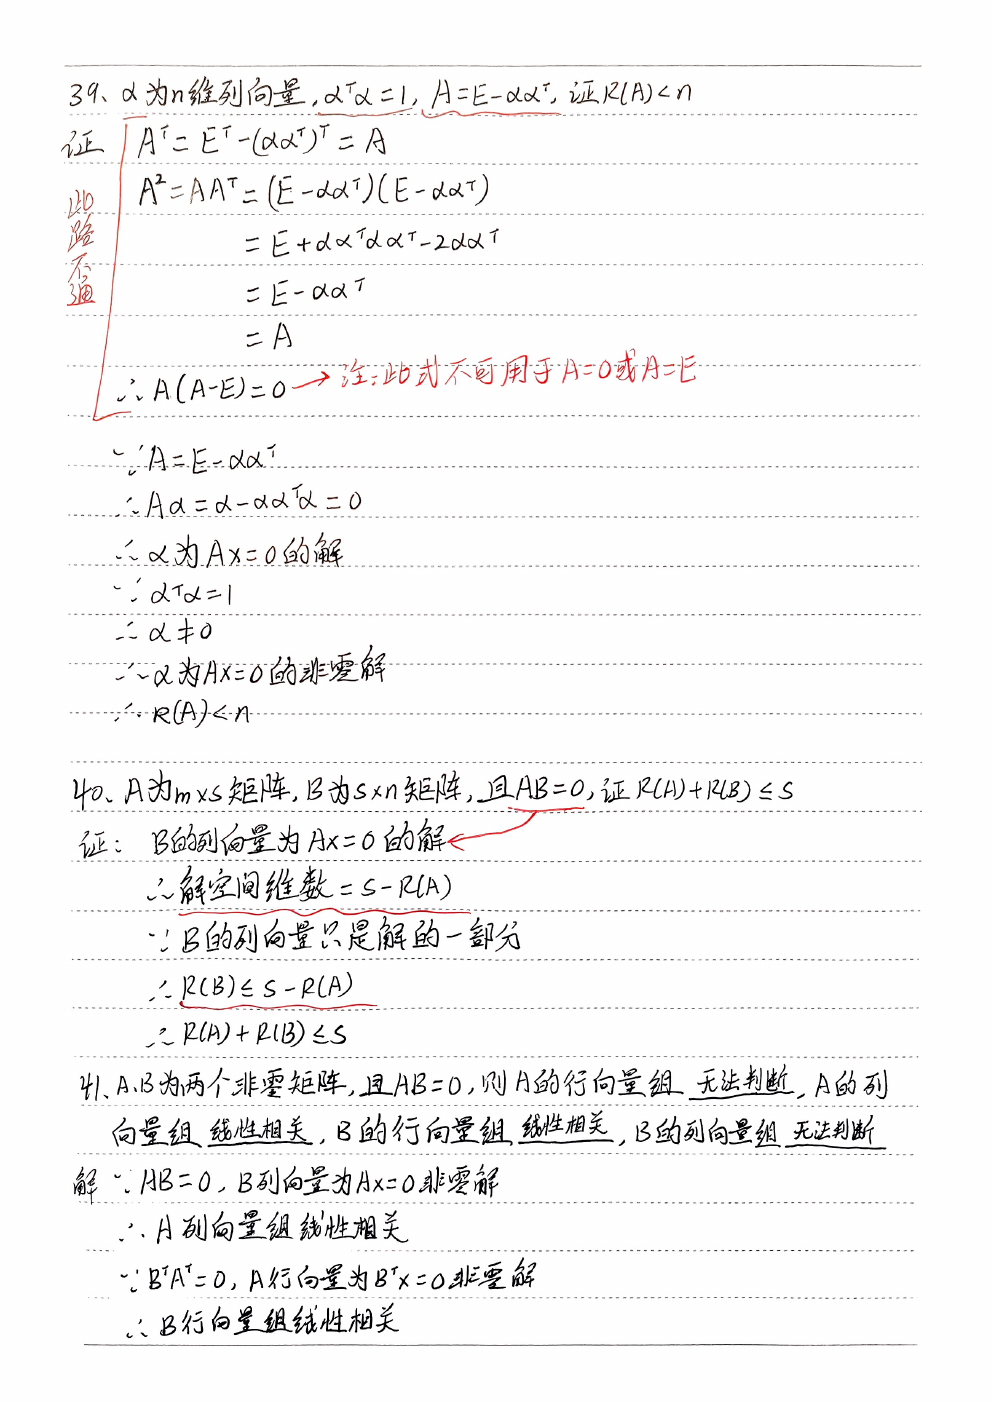 39、α为n维列向量,αᵀα=1, A=E-ααᵀ,证R(A)<n
证 Aᵀ=Eᵀ-(ααᵀ)ᵀ=A
此路不通
A²=AAᵀ=(E-ααᵀ)(E-ααᵀ)
=E+ααᵀααᵀ-2ααᵀ
=E-ααᵀ
=A
∴A(A-E)=0→注:此式不可用于A=0或A=E
∵A=E-ααᵀ
∴Aα=α-ααᵀα=0
∴α为Ax=0的解
∵αᵀα=1
∴α≠0
∴α为Ax=0的非零解
∴R(A)<n
40、A为m×s矩阵,B为s×n矩阵,且AB=0,证R(A)+R(B)≤s
证: B的列向量为Ax=0的解
∴解空间维数=s-R(A)
∵B的列向量只是解的一部分
∴R(B)≤s-R(A)
∴R(A)+R(B)≤s
41、A.B为两个非零矩阵,且AB=0,则A的行向量组 无法判断,A的列
向量组 线性相关,B的行向量组 线性相关,B的列向量组 无法判断
解 ∵AB=0,B列向量为Ax=0非零解
∴A列向量组线性相关
∵BᵀAᵀ=0,A行向量为Bᵀx=0非零解
∴B行向量组线性相关